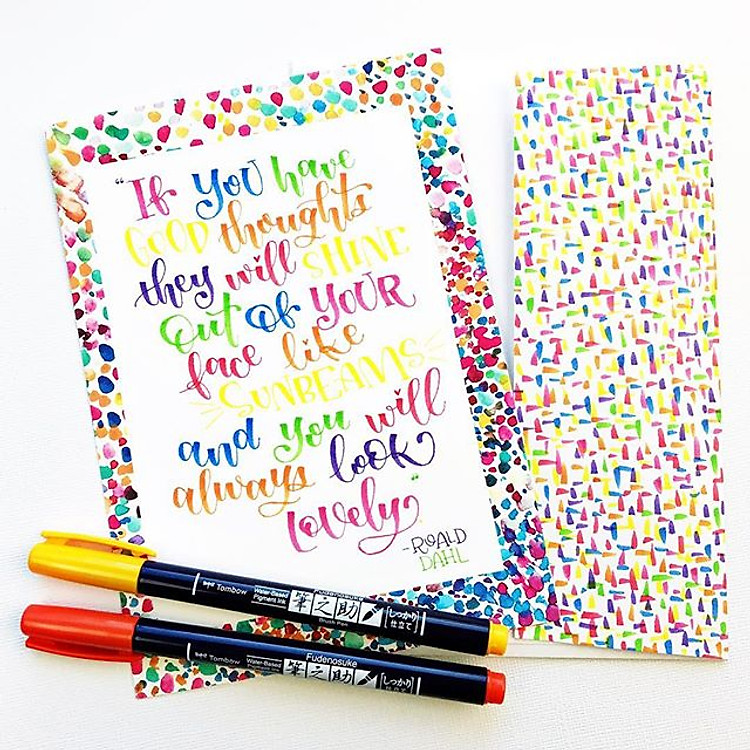 “If you have
GOOD thoughts
they will SHINE
Out Of YOUR
face like
SUNBEAMS
and you will
always look
lovely."
-ROALD
DAHL
Tombow Water-Based Pigment Ink Fudenosuke 筆之助 Brush Pen しっかり仕立て
Tombow Water-Based Pigment Ink Fudenosuke 筆之助 しっかり仕立て